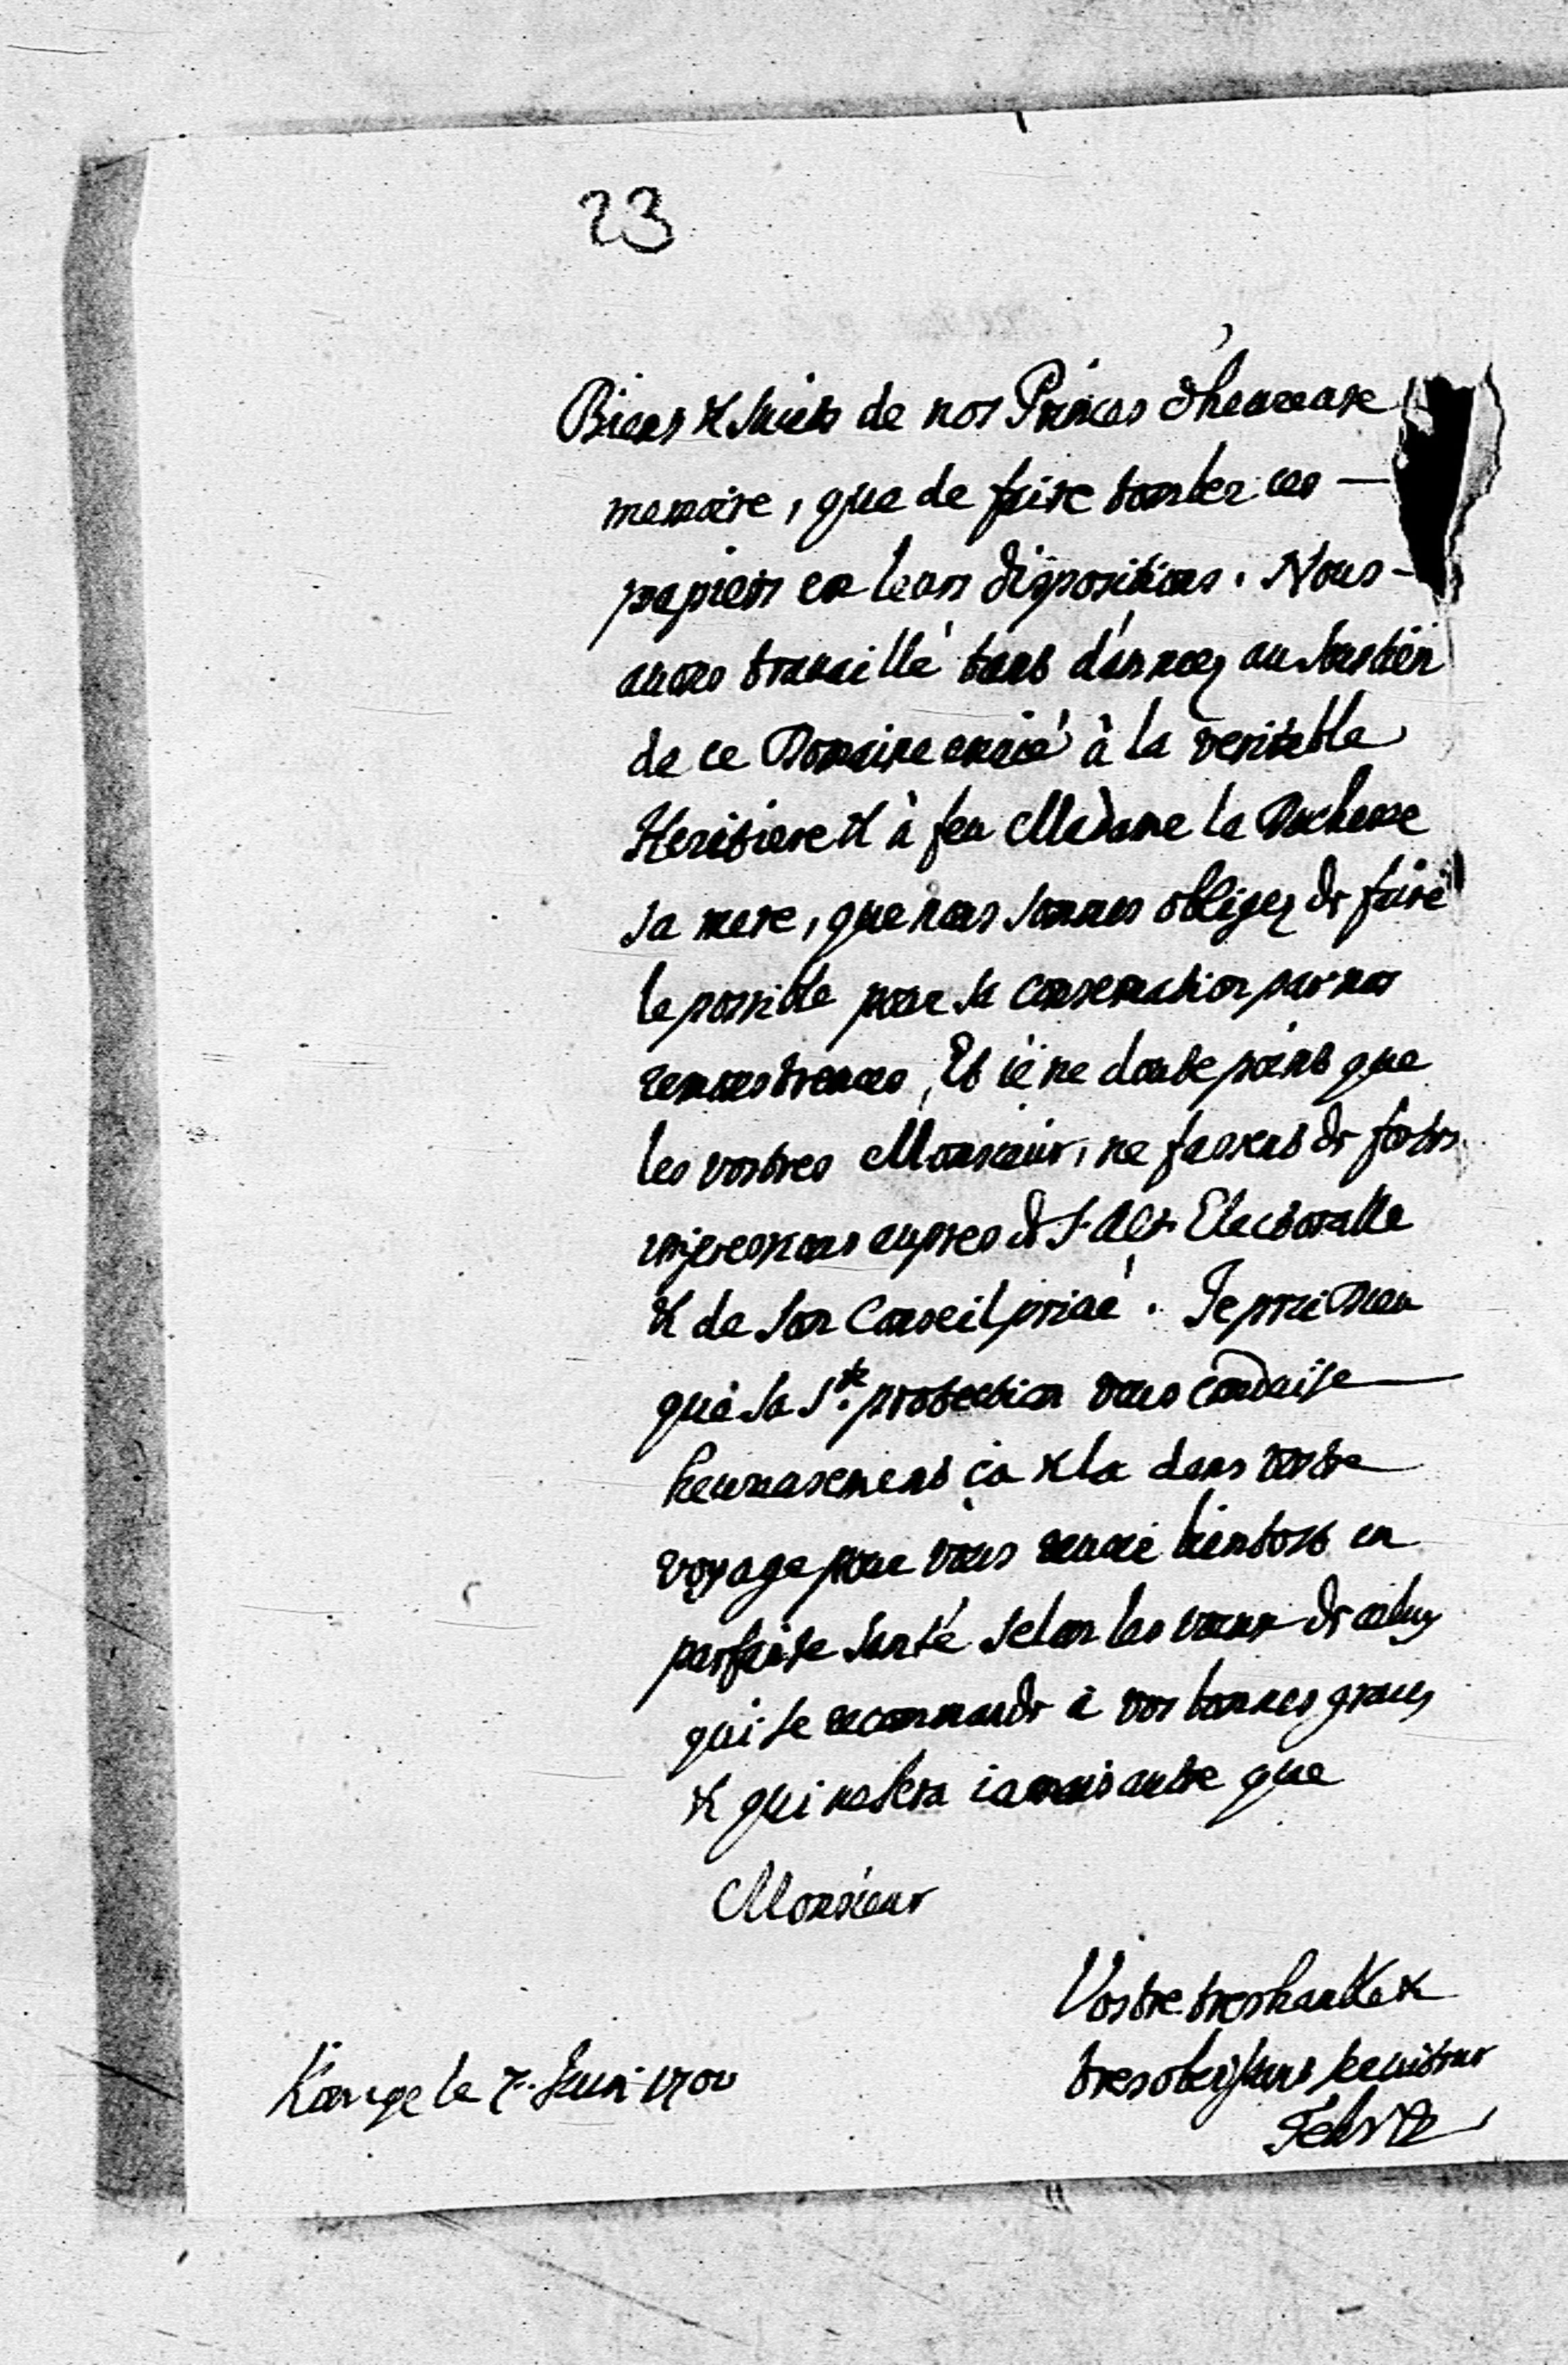 23
Biens & suiets de nos Princes d'heureuse
memoire, que de faire tomber ces
papiers en leurs dispositions. Nous
avons travaillé tant d'années au soustien
de ce Domaine envié à la veritable
Heritiere & à feu Madame la Duchesse
sa mere, que nous sommes obligez de faire
le possible pour sa conservation par nos
remonstrances, Et ie ne doute point que
les vostres Monsieur, ne fassent de fortes
impressions aupres de S. Alt. Electoralle
& de son Conseil privé. Je prie Dieu
que sa Ste. protection vous conduise
heureusement ça & la dans vostre
voyage pour vous revoir bientost en
parfaite santé selon les vœux de celuy
qui se recommande à vos bonnes graces
& qui ne sera iamais autre que
Monsieur
Vostre tres humble &
tres obeissant serviteur
le 7. Juin 1700